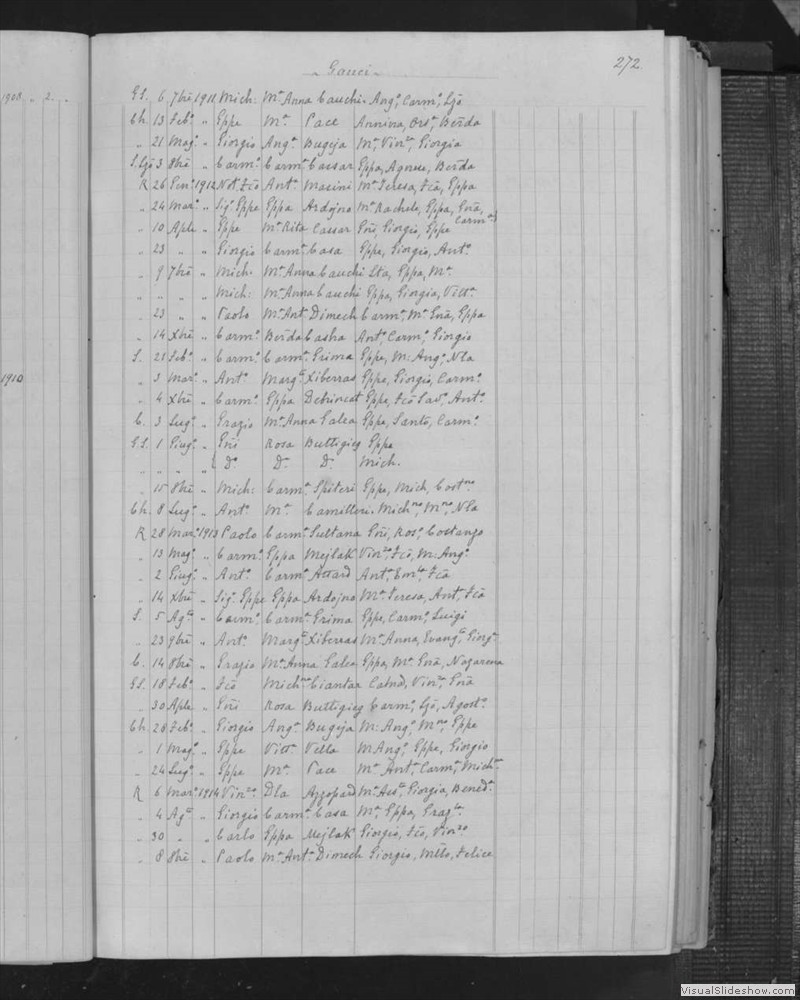 272.
Gauci
1908 " 2.
GS. 6 7bre 1911 Mich: Ma Anna Cauchi. Ango, Carmo, Ljò
Ch. 13 Febo. " Eppe Ma. Pace Annina, Orso, Berda
" 21 Mago. " Giorgio Anga. Bugeja Ma, Vinza, Giorgia
S. Ljò 3 8bre " Carmo. Carma. Cassar Eppa, Agnese, Berda
R 26 Geno. 1912 Not. Fcò Anta. Masini Ma Teresa, Fca, Eppa
" 24 Mar. " Sig. Eppe Eppa Ardojno Ma Rachele, Eppa, Gna,
Carma
" 10 Aple " Eppe Ma Rita Cassar Gni, Giorgio, Eppe
" 23 " " Giorgio Carma. Casa Eppe, Giorgio, Anto.
" 9 7bre " Mich. Ma Anna Cauchi Lta, Eppa, Ma.
" " " " Mich: Ma Anna Cauchi Eppa, Giorgia, Vitta.
" 23 " " Paolo Ma Anta. Dimech Carma, Ma Gna, Eppa
" 14 Xbre " Carmo. Berda Casha Anto, Carmo, Giorgio
S. 23 Febo. " Carmo. Carma. Grima Eppe, M: Ango. Nla
1910
" 3 Mar. " Anto. Marga. Xiberras Eppe, Giorgio, Carmo.
" 4 Xbre " Carmo. Eppa Debrincat Eppe, Fcò Savo. Anto.
C. 3 Lugo. " Grazio Ma Anna Galea Eppe, Santo, Carmo.
GS. 1 Giugo. " Gni Rosa Buttigieg Eppe
" " " " Do. Da. Da. Mich.
" 15 8bre " Mich: Carma. Spiteri Eppa, Mich, Costno
Ch. 8 Lugo. " Anto. Ma. Camilleri. Michna, Mna, Nla
R 28 Mar. 1913 Paolo Carma. Sultana Gni, Roso. Costanzo
" 13 Mago. " Carmo. Eppa Mejlak Vinzo, Fcò, M: Ango.
" 2 Giugo. " Anto. Carma. Attard Anta. Emle, Fca
" 14 Xbre " Sig. Eppe Eppa Ardojno Ma Teresa, Ant, Fcò
S. 5 Ago " Carmo. Carma. Grima Eppe, Carmo, Luigi
" 23 9bre " Anto. Marga. Xiberras Ma Anna, Evanga, Giorga.
C. 14 8bre " Grazio Ma Anna Galea Eppa, Ma Gna, Nazarena
GS. 18 Febo. " Fcò Michna Ciantar Catnd, Vinza, Gna
" 30 Aple " Gni Rosa Buttigieg Carmo, Ljò, Agosto.
Ch. 28 Febo. " Giorgio Anga. Bugeja M: Ango. Mno, Eppe
" 1 Mago. " Eppe Vitta. Vella M Ango, Eppe, Giorgio
" 24 Lugo. " Eppe Ma. Pace Ma Anta. Carma, Micha.
R 6 Mar. 1914 Vinzo Dla Azzopard Ma Assa. Giorgia, Beneda.
" 4 Ago " Giorgio Carma. Casa Ma, Eppa,
" 30 " " Carlo Eppa Mejlak Giorgio, Fcò, Vinzo
" 8 8bre " Paolo Ma Anta. Dimech Giorgio, Mtto, Felice
VisualSlideshow.com